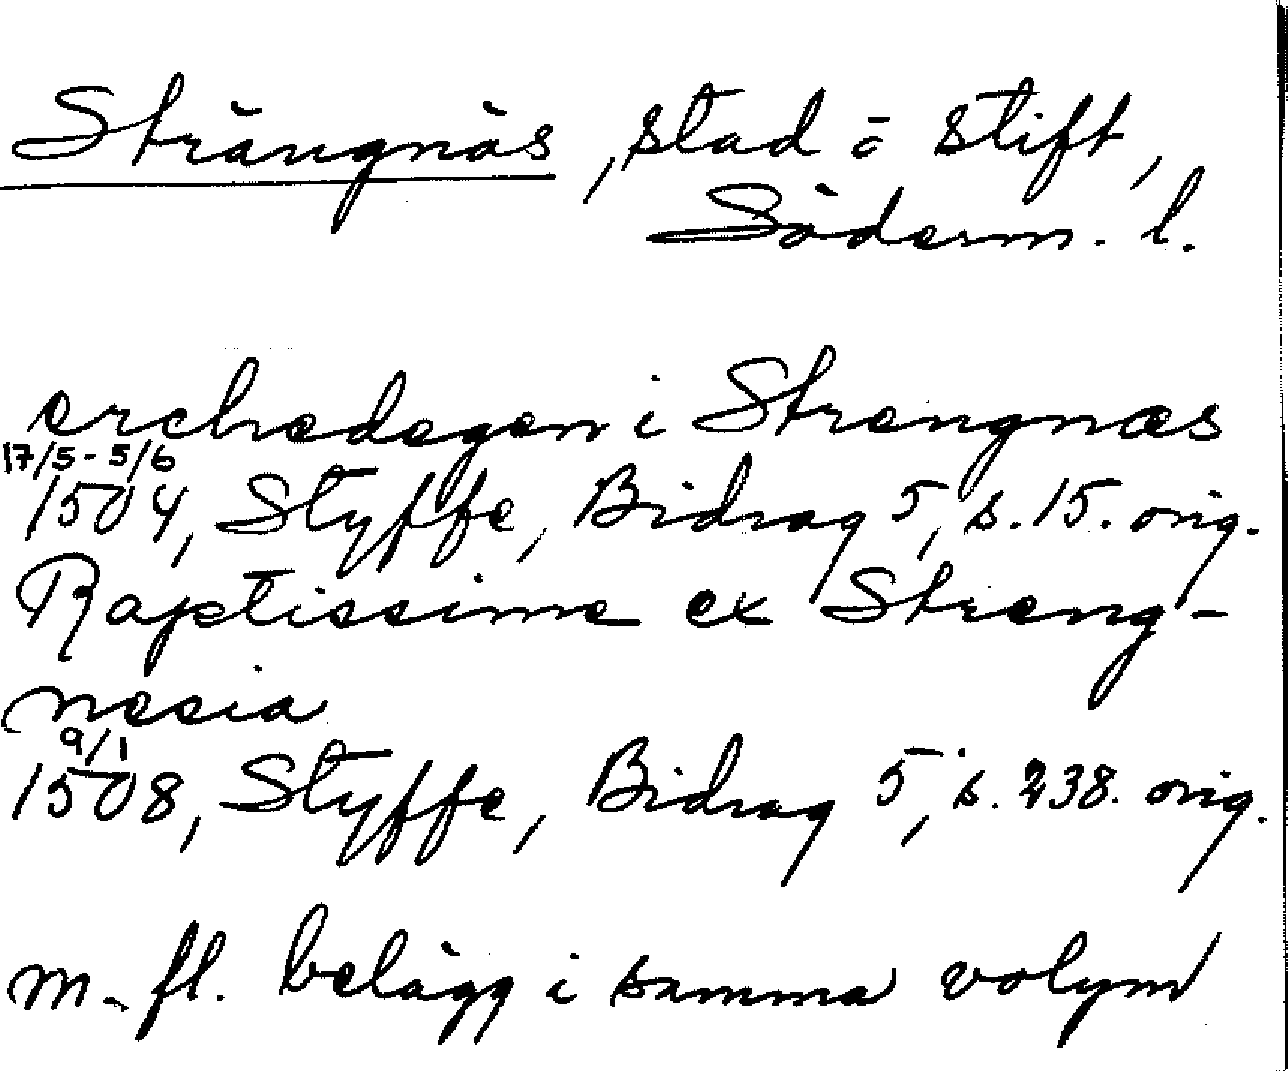 Strängnäs, stad o stift,
Söderm. l.
erchedegen i Strengnæs
17/5-5/6
1504, Styffe, Bidrag 5, s. 15. orig.
Raptissime ex Streng-
nesia
9/1
1508, Styffe, Bidrag 5, s. 238. orig.
m. fl. belägg i samma volym